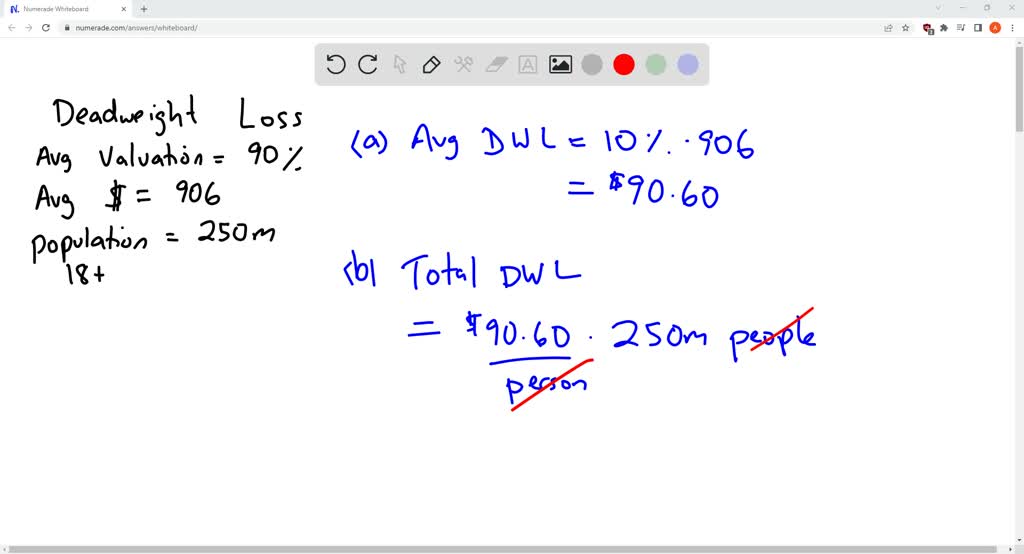 Numerade Whiteboard
numerade.com/answers/whiteboard/
Deadweight Loss
Avg Valuation = 90%
Avg $ = 906
population = 250m
18+
(a) Avg DWL = 10% · 906
= $90.60
(b) Total DWL
= $90.60 · 250m people
person